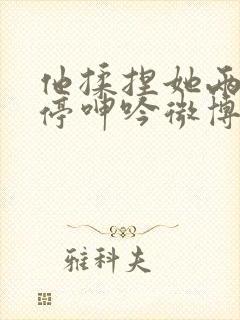 他揉捏她两
停呻吟微博
雅科夫